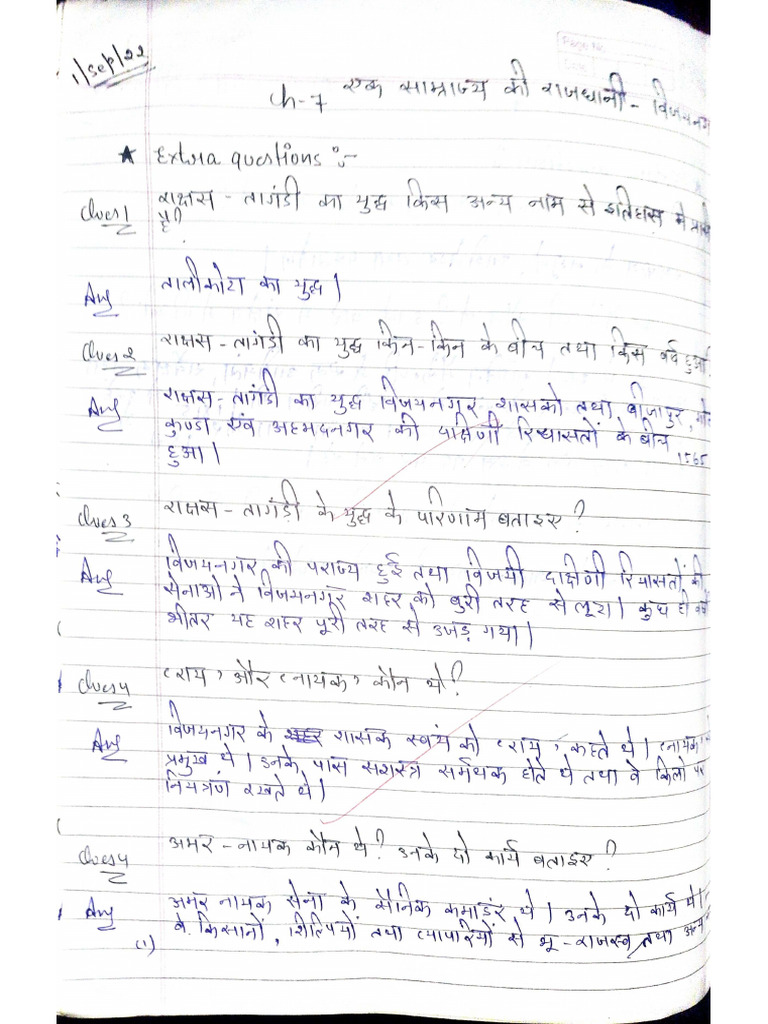 1/Sep/22
Page No.
Ch-7 एक साम्राज्य की राजधानी - विजयनग
★ Extra questions :-
Ques 1 राक्षस - तागंडी का युद्ध किस अन्य नाम से इतिहास मे
है?
Ans तालीकोटा का युद्ध।
Ques 2 राक्षस - तागंडी का युद्ध किन-किन के बीच तथा किस वर्ष हुआ
Ans राक्षस - तागंडी का युद्ध विजयनगर शासको तथा बीजापुर, गोल
कुण्डा एंव अहमदनगर की दाक्षिणी रियासतों के बीच 1565
हुआ।
Ques 3 राक्षस - तागंडी के युद्ध के परिणाम बताइए?
Ans विजयनगर की पराज्य हुई तथा विजयी दाक्षिणी रियासतों की
सेनाओ ने विजयनगर शहर को बुरी तरह से लूटा। कुछ ही वर्षो
भीतर यह शहर पूरी तरह से उजड़ गया।
Ques 4 'राय' और 'नायक' कौन थे?
Ans विजयनगर के शासक स्वंय को 'राय' कहते थे। 'नायक'
प्रमुख थे। इनके पास सशस्त्र सर्मथक होते थे तथा वे किलो पर
नियत्रंण रखते थे।
Ques 4 अमर - नायक कौन थे? उनके दो कार्य बताइए?
Ans अमर नायक सेना के सैनिक कमांडर थे। उनके दो कार्य थे।
(1) वे किसानों, शिल्पियों तथा व्यापारियों से भू - राजस्व तथा अन्य